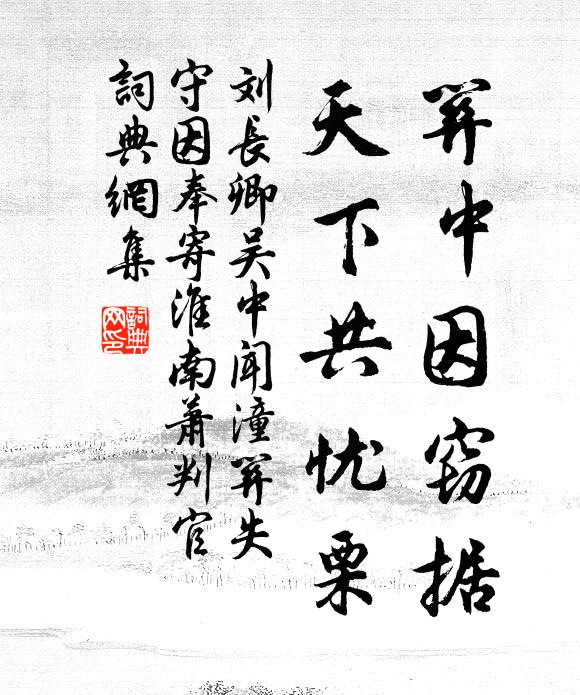 関中因窃据
天下共忧栗
刘長卿吴中闻潼関失
守因奉寄淮南萧判官
詞典網集
詞典网印